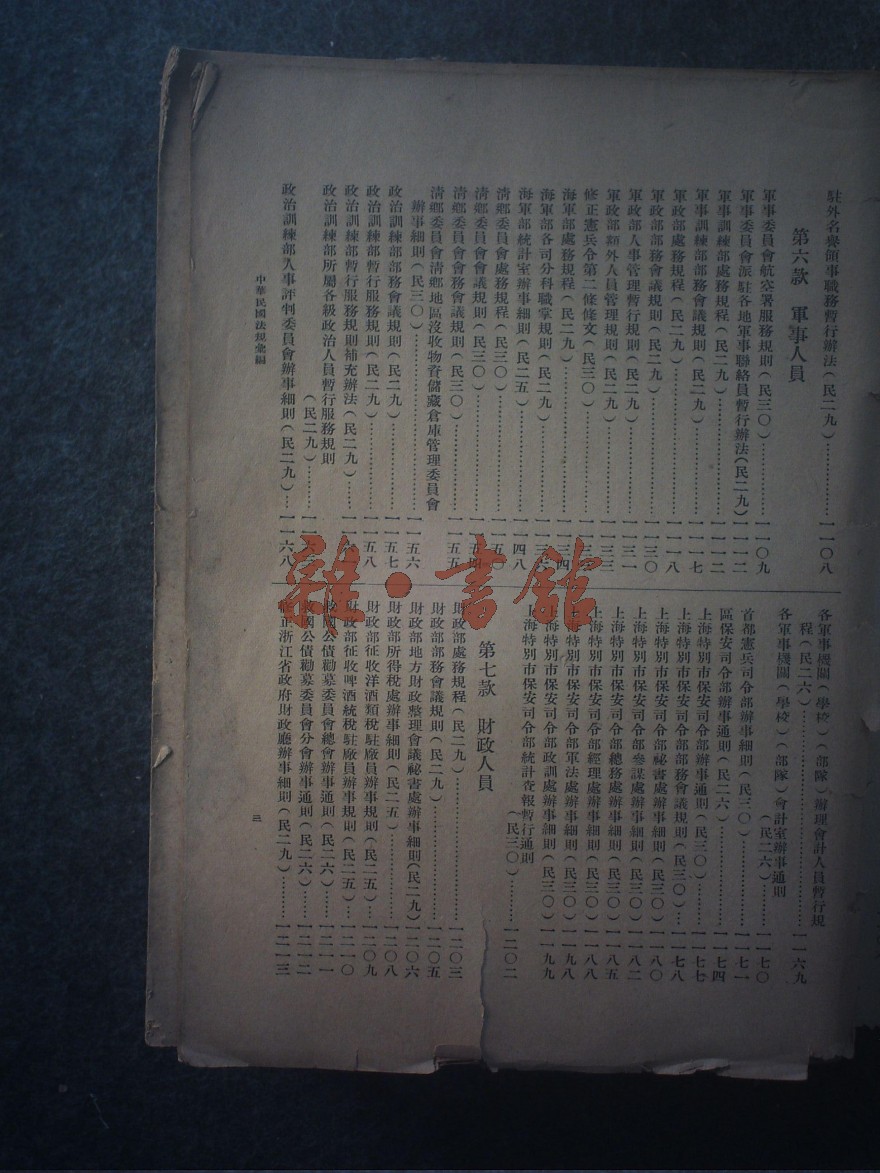 駐外名譽領事職務暫行辦法(民二九)……一一〇八
第六款 軍事人員
軍事委員會航空署服務規則(民三〇)……一一〇九
軍事委員會派駐各地軍事聯絡員暫行辦法(民二九)一一一二
軍事訓練部處務規程(民二九)……一一一二
軍事訓練部部務會議規則(民二九)……一一一七
軍政部處務規程(民二九)……一一一八
軍政部部務會議規則(民二九)……一一三〇
軍政部人事管理暫行規則(民二九)……一一三一
軍政部額外人員管理規則(民二九)……一一三三
修正憲兵令第二條條文(民三〇)……
海軍部處務規程(民二九)……一一三四
海軍部各司分科職掌規則(民二九)……
海軍部統計室辦事細則(民二五)……一一四八
清鄉委員會處務規程(民三〇)……一一五〇
清鄉委員會會議規則(民三〇)……一一五四
清鄉委員會會務會議規則(民三〇)……一一五五
清鄉委員會清鄉地區沒收物資儲藏倉庫管理委員會
辦事細則(民三〇)……一一五六
政治訓練部部務會議規則(民二九)……一一五七
政治訓練部暫行服務規則(民二九)……一一五八
政治訓練部暫行服務規則補充辦法(民二九)…
政治訓練部所屬各級政治人員暫行服務規則
(民二九)……
政治訓練部人事評判委員會辦事細則(民二九)…一一六八
各軍事機關(學校)(部隊)辦理會計人員暫行規
程(民二六)……一一六九
各軍事機關(學校)(部隊)會計室辦事通則
(民二六)……一一七〇
首都憲兵司令部辦事細則(民三〇)……一一七一
區保安司令部辦事通則(民二六)……一一七四
上海特別市保安司令部辦事通則(民三〇)……一一七七
上海特別市保安司令部部務會議規則(民三〇)…一一七八
上海特別市保安司令部祕書處辦事細則(民三〇)一一八〇
上海特別市保安司令部參謀處辦事細則(民三〇)一一八二
上海特別市保安司令部總務處辦事細則(民三〇)一一八五
上海特別市保安司令部經理處辦事細則(民三〇)一一八八
上海特別市保安司令部軍法處辦事細則(民三〇)一一九八
上海特別市保安司令部政訓處辦事細則(民三〇)一一九九
上海特別市保安司令部統計查報暫行通則
(民三〇)……一二〇二
第七款 財政人員
財政部處務規程(民二九)……一二〇三
財政部部務會議規則(民二九)……一二〇五
財政部地方財政整理會議祕書處辦事細則(民二九)一二〇六
財政部所得稅處辦事細則(民二五)……一二〇八
財政部征收洋酒類稅駐廠員辦事規則(民二五)…一二〇九
財政部征收啤酒統稅駐廠員辦事規則(民二五)…一二一〇
救國公債勸募委員會總會辦事通則(民二六)……一二一一
救國公債勸募委員會分會辦事通則(民二六)……一二一二
修正浙江省政府財政廳辦事細則(民二九)……一二一三
中華民國法規彙編
三
雜·書館